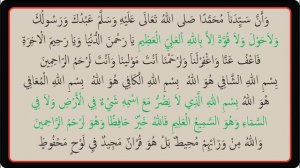 وَأَنَّ سَيِّدَنَا مُحَمَّدًا صَلَّى اللهُ تَعَالَى عَلَيْهِ وَسَلَّمَ عَبْدُكَ وَرَسُولُكَ
وَلَاحَوْلَ وَلَا قُوَّةَ إِلَّا بِاللهِ الْعَلِيِّ الْعَظِيمِ يَا رَحْمٰنَ الدُّنْيَا وَيَا رَحِيمَ الْآخِرَةِ
فَاعْفُ عَنَّا وَاغْفِرْلَنَا وَارْحَمْنَا أَنْتَ مَوْلَينَا وَأَنْتَ أَرْحَمُ الرَّاحِمِينَ
بِسْمِ اللهِ الشَّافِي هُوَ اللهُ بِسْمِ اللهِ الْكَافِي هُوَ اللهُ بِسْمِ اللهِ الْمُعَافِي
هُوَ اللهُ بِسْمِ اللهِ الَّذِي لَا يَضُرُّ مَعَ اسْمِهِ شَيْءٌ فِي الْأَرْضِ وَلَا فِي
السَّمَاءِ وَهُوَ السَّمِيعُ الْعَلِيمُ فَاللهُ خَيْرٌ حَافِظًا وَهُوَ أَرْحَمُ الرَّاحِمِينَ
وَاللهُ مِنْ وَرَائِهِمْ مُحِيطٌ بَلْ هُوَ قُرْاٰنٌ مَجِيدٌ فِي لَوْحٍ مَحْفُوظٍ